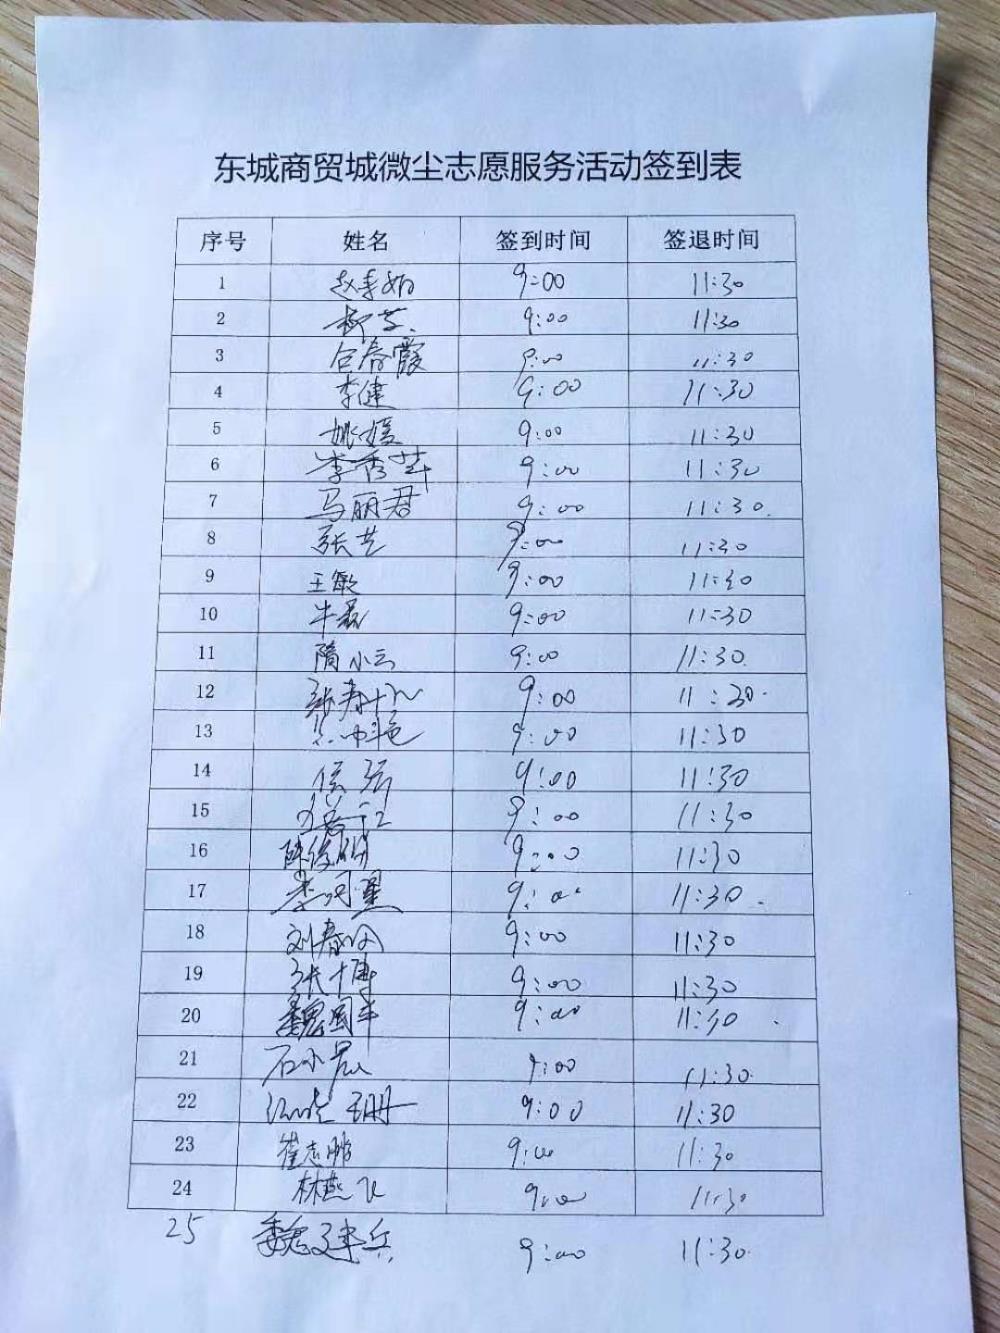 东城商贸城微尘志愿服务活动签到表
序号 姓名 签到时间 签退时间
1 赵季娟 9:00 11:30
2 柳芸 9:00 11:30
3 仓春霞 9:00 11:30
4 李健 9:00 11:30
5 姚媛 9:00 11:30
6 李秀芹 9:00 11:30
7 马丽君 9:00 11:30
8 张芝 9:00 11:30
9 王敏 9:00 11:30
10 牛磊 9:00 11:30
11 隋小云 9:00 11:30
12 9:00 11:30
13 9:00 11:30
14 9:00 11:30
15 9:00 11:30
16 陈俊明 9:00 11:30
17 9:00 11:30
18 刘春 9:00 11:30
19 张 9:00 11:30
20 魏国丰 9:00 11:30
21 石小晨 9:00 11:30
22 9:00 11:30
23 崔志鹏 9:00 11:30
24 林燕飞 9:00 11:30
25 魏建兵 9:00 11:30